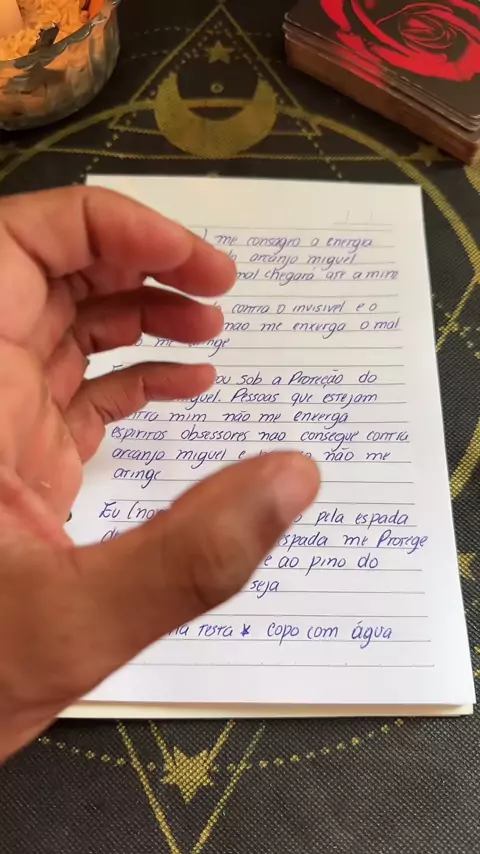 me consagro a energia
arcanjo miguel
mal chegará até a mim
contra o invisivel e o
não me enxerga o mal
me atinge
ou sob a Proteção do
guel. Pessoas que estejam
mim não me enxerga
espiritos obsessores nao consegue contra
arcanjo miguel e não me
atinge
Eu (no pela espada
spada me Protege
e ao pino do
seja
na testa * copo com água